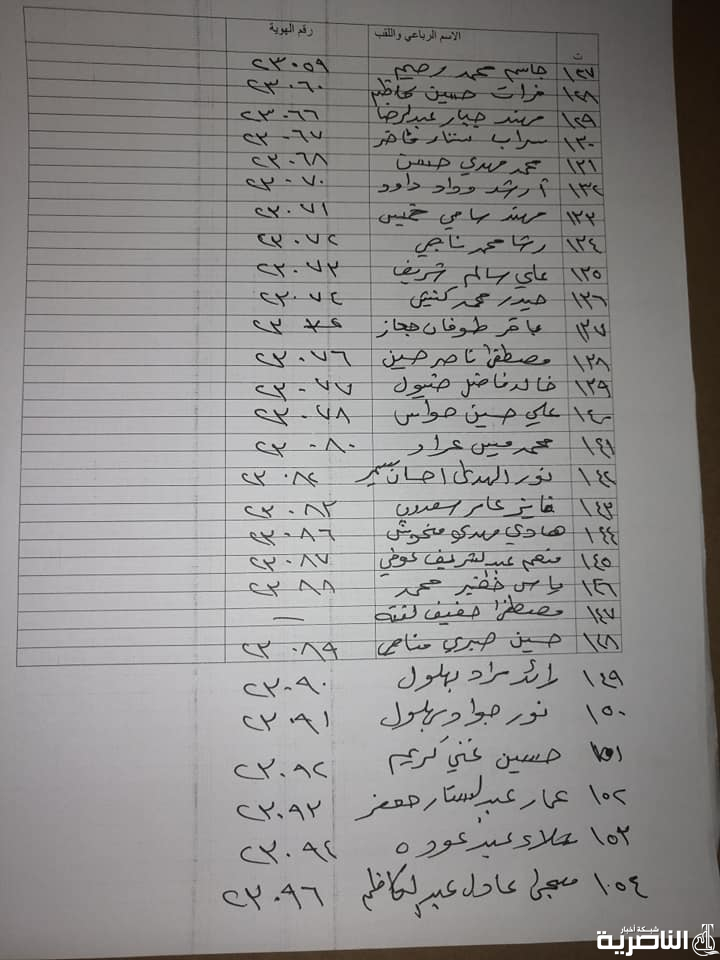 ت الاسم الرباعي واللقب رقم الهوية
١٢٧ جاسم محمد رحيم ٢٣٠٥٩
١٢٨ فرات حسين كاظم ٢٣٠٦٠
١٢٩ مهند جبار عبدالرضا ٢٣٠٦٦
١٣٠ سراب ستار فاخر ٢٣٠٦٧
١٣١ محمد مهدي حسن ٢٣٠٦٨
١٣٢ أرشد وداد داود ٢٣٠٧٠
١٣٣ مهند سامي خميس ٢٣٠٧١
١٣٤ رشا محمد ناجي ٢٣٠٧٢
١٣٥ علي سالم شريف ٢٣٠٧٣
١٣٦ حيدر محمد ٢٣٠٧٤
١٣٧ باقر طوفان حجاز
١٣٨ مصطفى ناصر حسين ٢٣٠٧٦
١٣٩ خالد فاضل ٢٣٠٧٧
١٤٠ علي حسين حواس ٢٣٠٧٨
١٤١ محمد ٢٣٠٨٠
١٤٢ نور الهدى احسان سمير ٢٣٠٨٢
١٤٣ فايز عامر سعدون ٢٣٠٨٣
١٤٤ هادي مهدي منخوش ٢٣٠٨٦
١٤٥ منعم عبدالشريف عوفي ٢٣٠٨٧
١٤٦ ياس خضير محمد ٢٣٠٨٨
١٤٧ مصطفى حفيف لفته —
١٤٨ حسين صبري مناحي ٢٣٠٨٩
١٤٩ رائد مراد بهلول ٢٣٠٩٠
١٥٠ نور جواد بهلول ٢٣٠٩١
١٥١ حسين غني كريم ٢٣٠٩٢
١٥٢ عمار عبدالستار جعفر ٢٣٠٩٣
١٥٣ علاء عبد عوده ٢٣٠٩٤
١٠٥٤ عادل عبدالكاظم ٢٣٠٩٦
شبكة أخبار
الناصرية